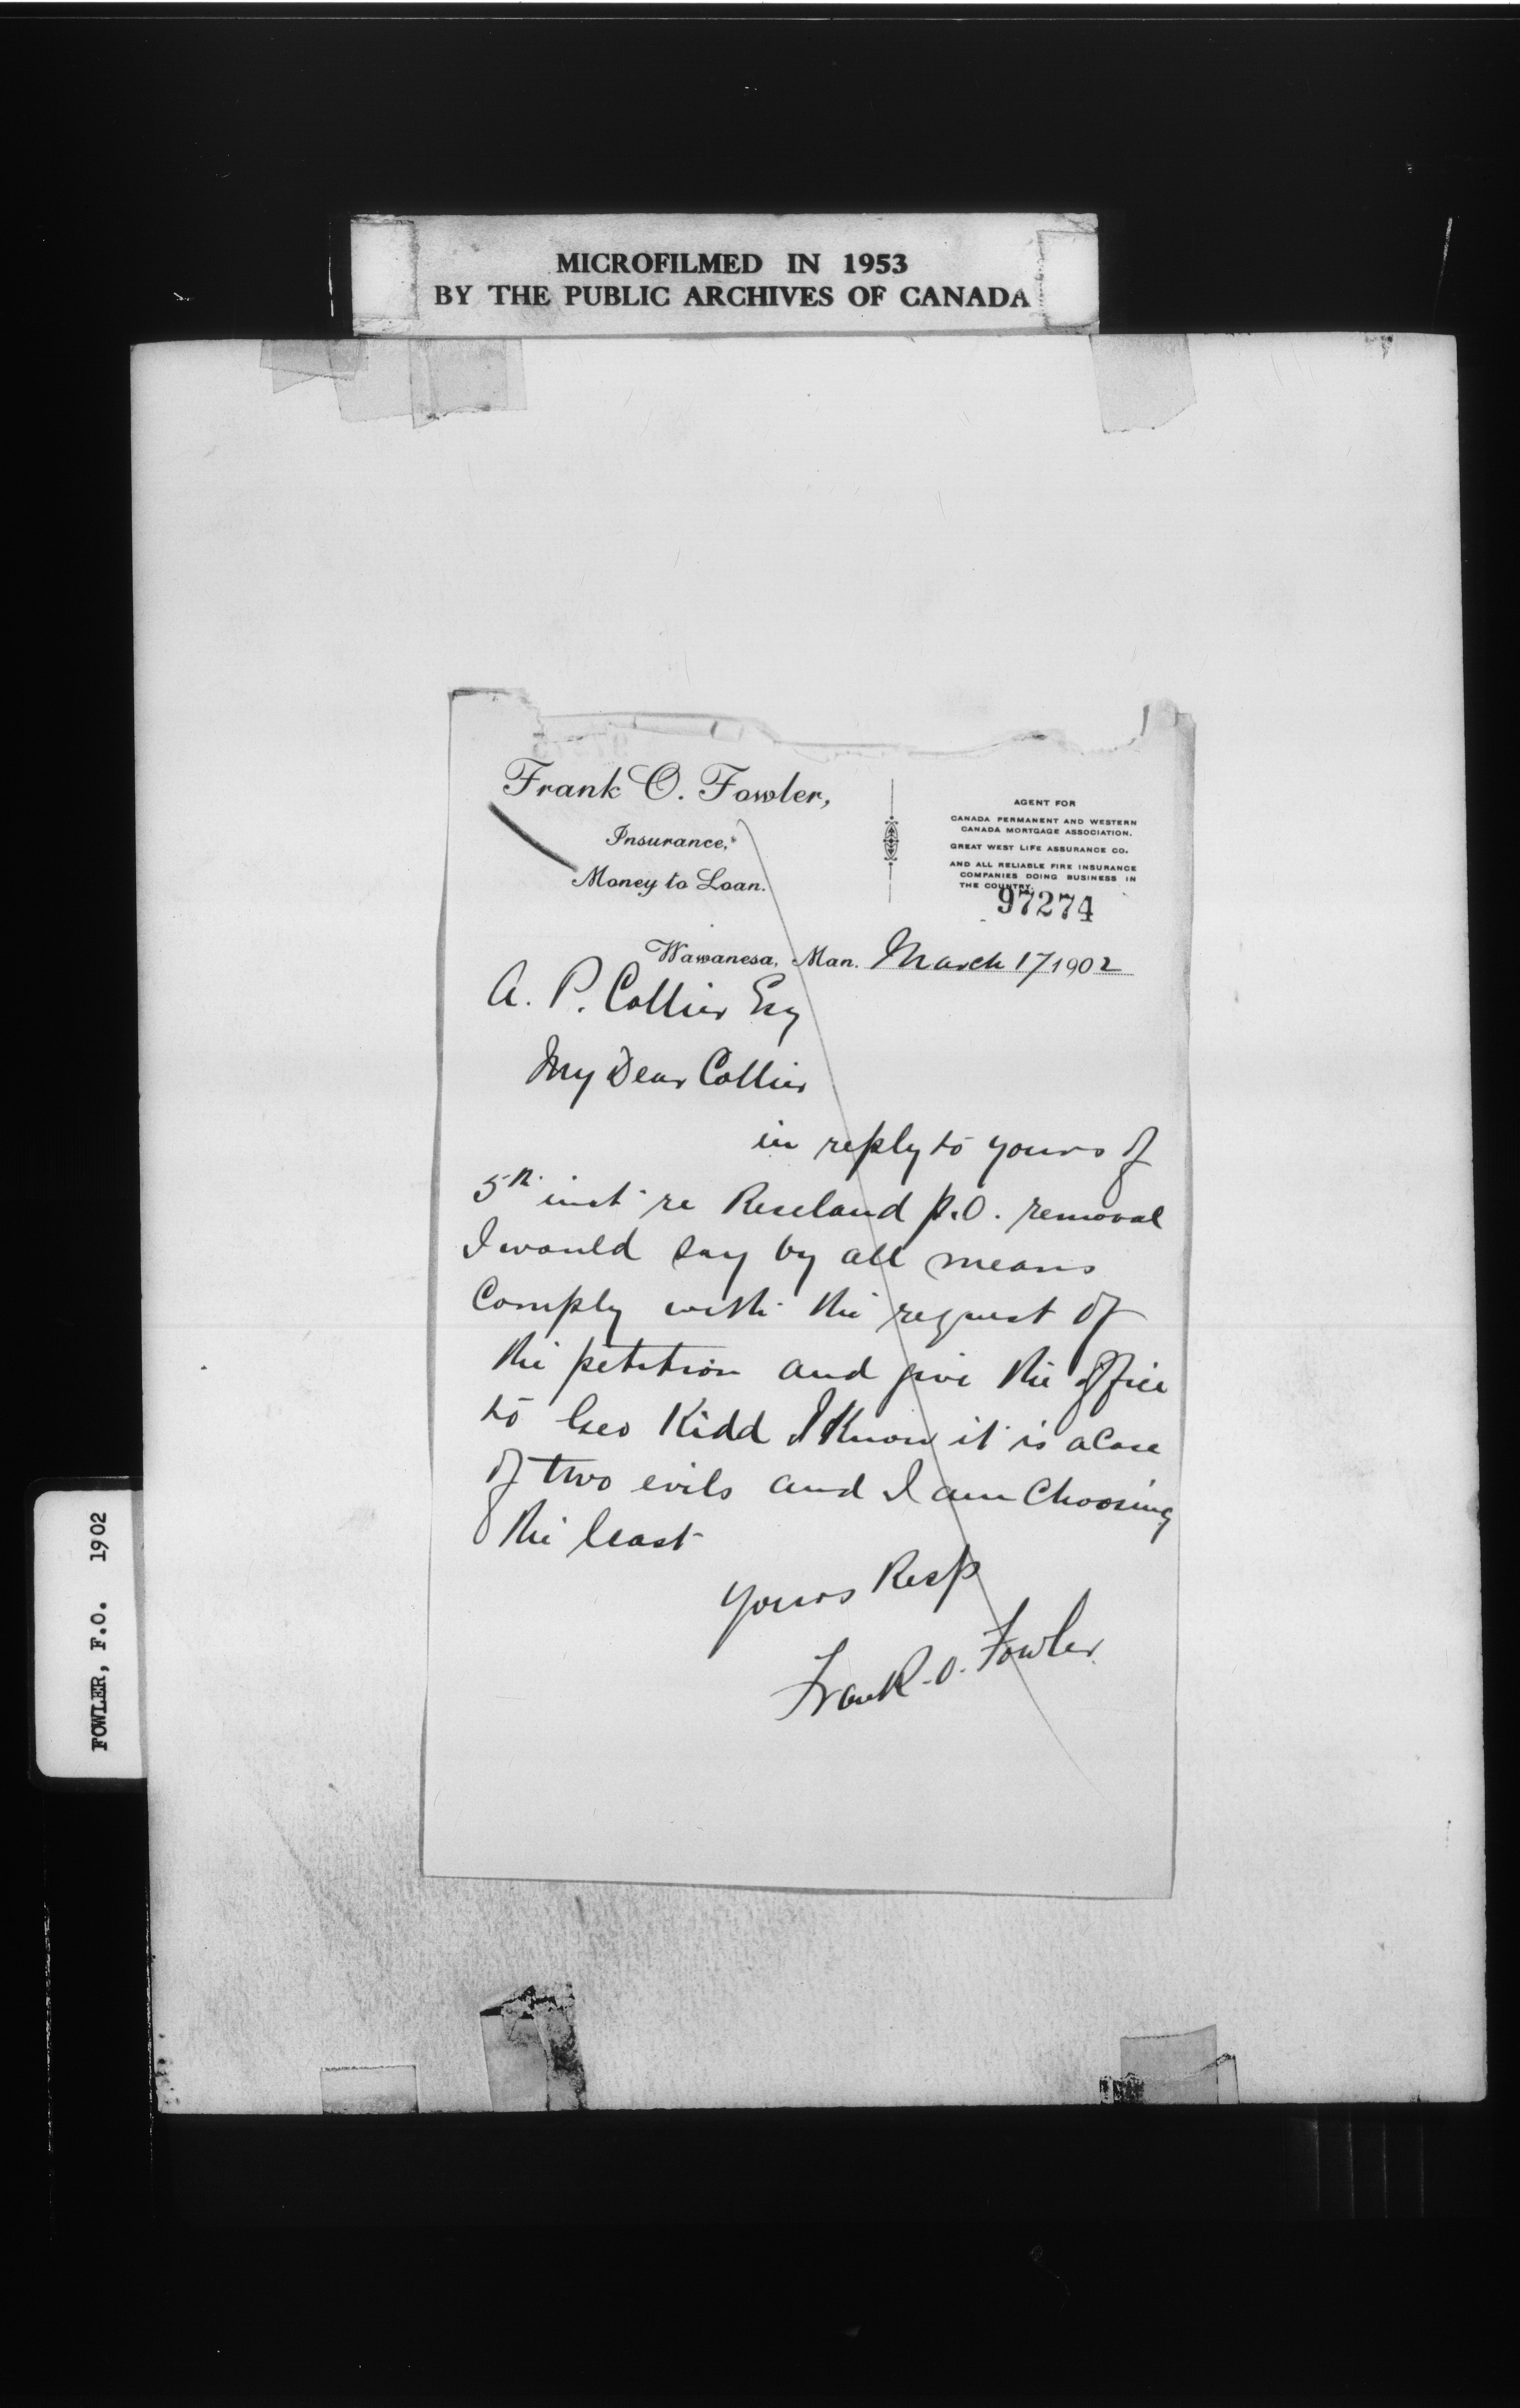 MICROFILMED IN 1953
BY THE PUBLIC ARCHIVES OF CANADA
Frank O. Fowler,
Insurance,
Money to Loan.
AGENT FOR
CANADA PERMANENT AND WESTERN
CANADA MORTGAGE ASSOCIATION.
GREAT WEST LIFE ASSURANCE CO.
AND ALL RELIABLE FIRE INSURANCE
COMPANIES DOING BUSINESS IN
THE COUNTRY.
97274
Wawanesa, Man. March 17 1902
A. P. Collier Esq
My Dear Collier
in reply to yours of
5th inst re Reseland p.O. removal
I would say by all means
Comply with the request of
the petition and give the office
to Geo Kidd I Know it is a Case
of two evils and I am Choosing
the least
Yours Resp
Frank. O. Fowler
FOWLER, F.O. 1902